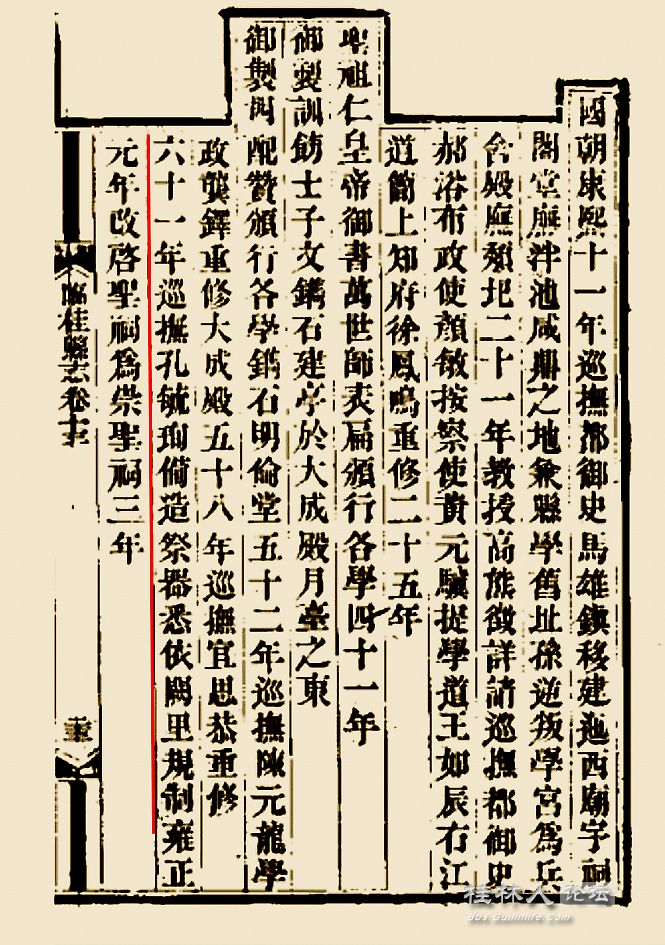 國朝康熙十一年巡撫都御史馬雄鎮移建迤西廟宇祠
閣堂廡泮池咸鼎之地兼縣學舊址孫逆叛學宮爲兵
舍殿廡頹圯二十一年教授高熊徵詳請巡撫都御史
郝浴布政使顏敏按察使黃元驥提學道王如辰右江
道簡上知府徐鳳鳴重修二十五年
聖祖仁皇帝御書萬世師表扁頒行各學四十一年
御製訓飭士子文鐫石建亭於大成殿月臺之東
御製四配贊頒行各學鐫石明倫堂五十二年巡撫陳元龍學
政龔鐸重修大成殿五十八年巡撫宜思恭重修
六十一年巡撫孔毓珣備造祭器悉依闕里規制雍正
元年改啓聖祠爲崇聖祠三年
臨桂縣志卷十三
桂林人论坛
Bbs.Guilinlife.Com